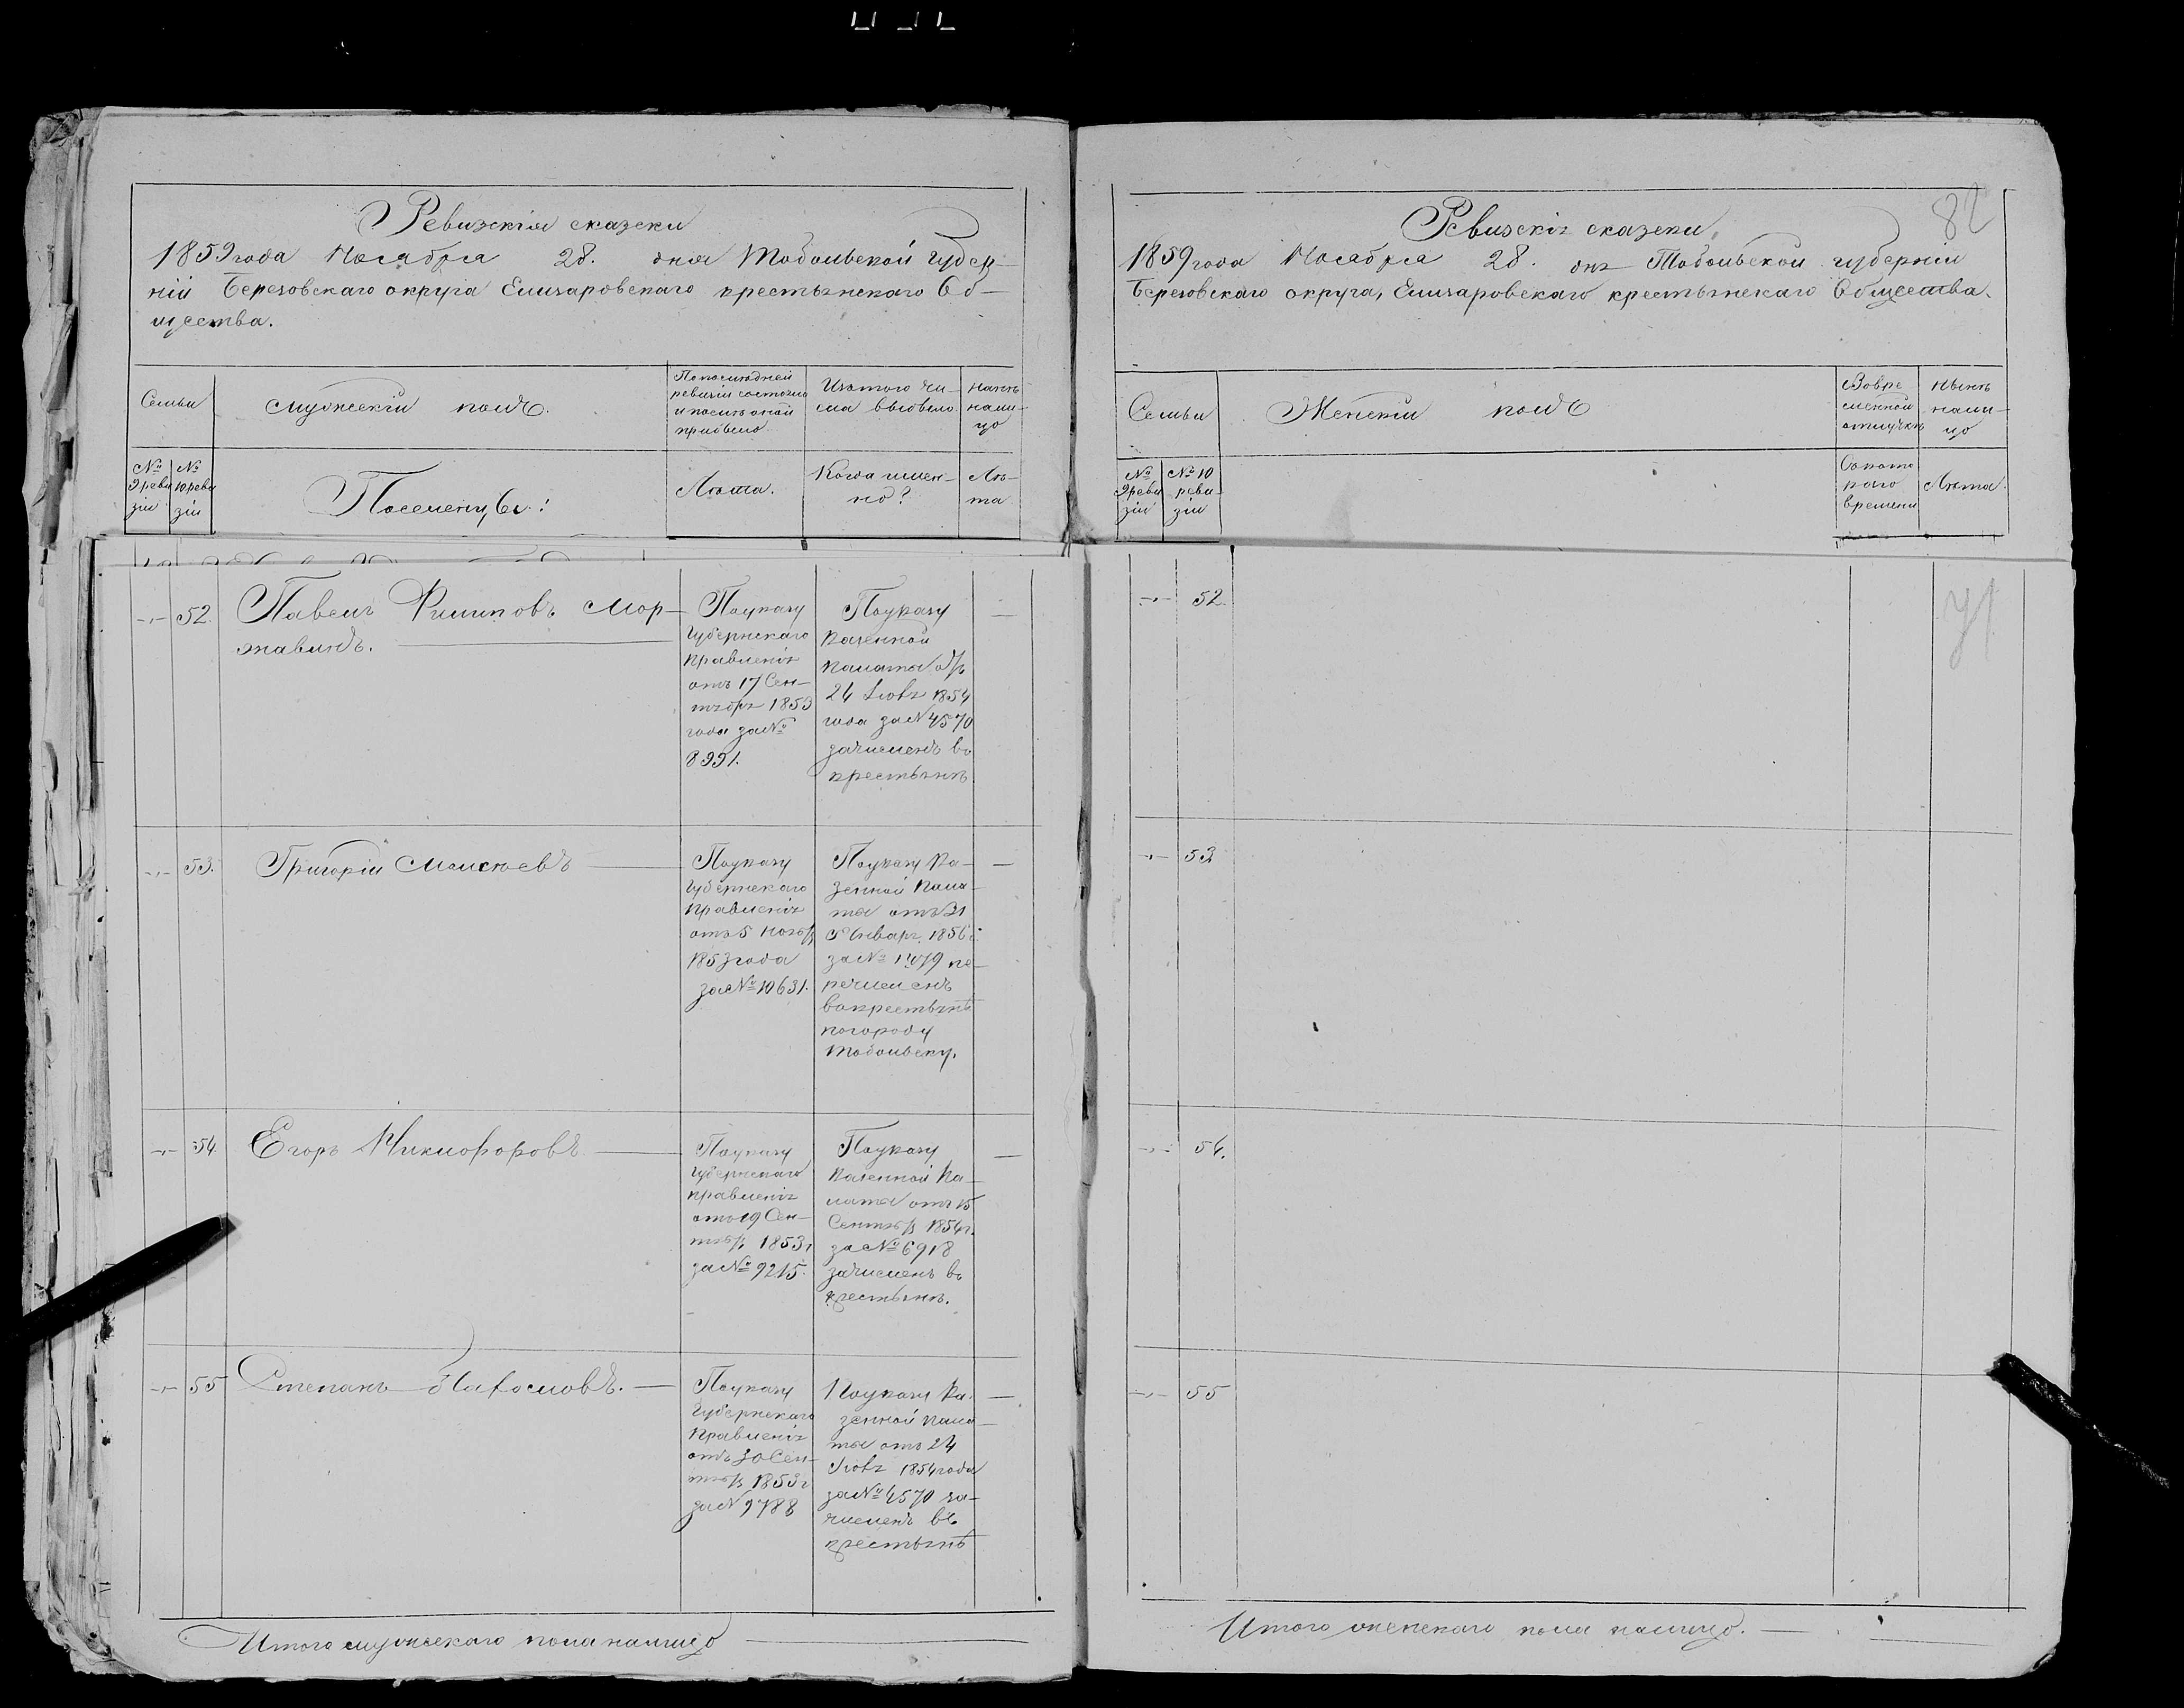 Ревизскія сказки
1859 года Ноября 28. дня Тобольской Губер-
ніи Березовскаго округа Елизаровскаго крестьянскаго Об-
щества.
Семьи
Мужескій полъ.
По последней
ревизіи состояло
и после оной
прибыло
Изътого чи-
сла выбыло
Ныне
нали-
цо
№
9 реви
зіи
№
10 реви
зіи
Поселенцы:
Лѣта.
Когда имен-
но?
Лѣ-
та
52.
Павелъ Филиповъ Мор-
тавинъ.
Поуказу
Губернскаго
Правленія
отъ 17 Сен-
тября 1853
года за №
8991.
Поуказу
Казенной
Палаты отъ
24 Іюля 1854
года за N 4570
зачисленъ въ
крестьянѣ
53.
Григорій Моисѣевъ
Поуказу
Губернскаго
Правленія
отъ 5 Нояб
1853 года
за № 10631.
Поуказу Ка-
зенной Пала-
ты отъ 31
Января 1856 г.
за № 1079 пе-
речисленъ
вокрестьянѣ
погороду
Тобольску.
54.
Егоръ Никифоровъ
Поуказу
Губернскаго
Правленія
отъ 19 Сен-
тяб. 1853 г
за № 9215.
Поуказу
Казенной Па-
латы отъ 15
Сентяб 1854 г.
за № 6918
зачисленъ въ
крестьянѣ.
55
Степанъ
Поуказу
Губернскаго
Правленія
отъ 30 Сен-
тяб 1853 г
за N 9788
Поуказу Ка-
зенной Пала-
ты отъ 24
Іюля 1854 года
за № 4570 за-
численъ въ
крестьянѣ
Итого мужескаго пола налицо
82
Ревизскія сказки
1859 года Ноября 28. дня Тобольской губерніи
Березовскаго округа, Елизаровскаго крестьянскаго Общества.
Семьи
Женскій полъ
Вовре
менной
отлучкѣ
Нынѣ
нали-
цо
№
9 реви
зіи
№ 10
реви-
зіи
Ското
раго
времени
Лѣта.
52.
53
54.
55
Итого женскаго пола налицо.